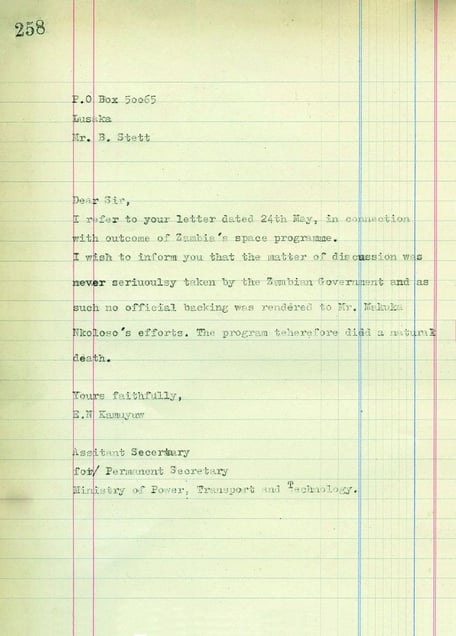 258
P.O Box 50065
Lusaka
Mr. B. Stett
Dear Sir,
I refer to your letter dated 24th May, in connection
with outcome of Zambia's space programme.
I wish to inform you that the matter of discussion was
never seriuoulsy taken by the Zambian Government and as
such no official backing was rendered to Mr. Makuka
Nkoloso's efforts. The program teherefore didd a natural
death.
Yours faithfully,
E.N Kamuyuw
Assitant Secertary
for/ Permanent Secretary
Ministry of Power, Transport and Technology.